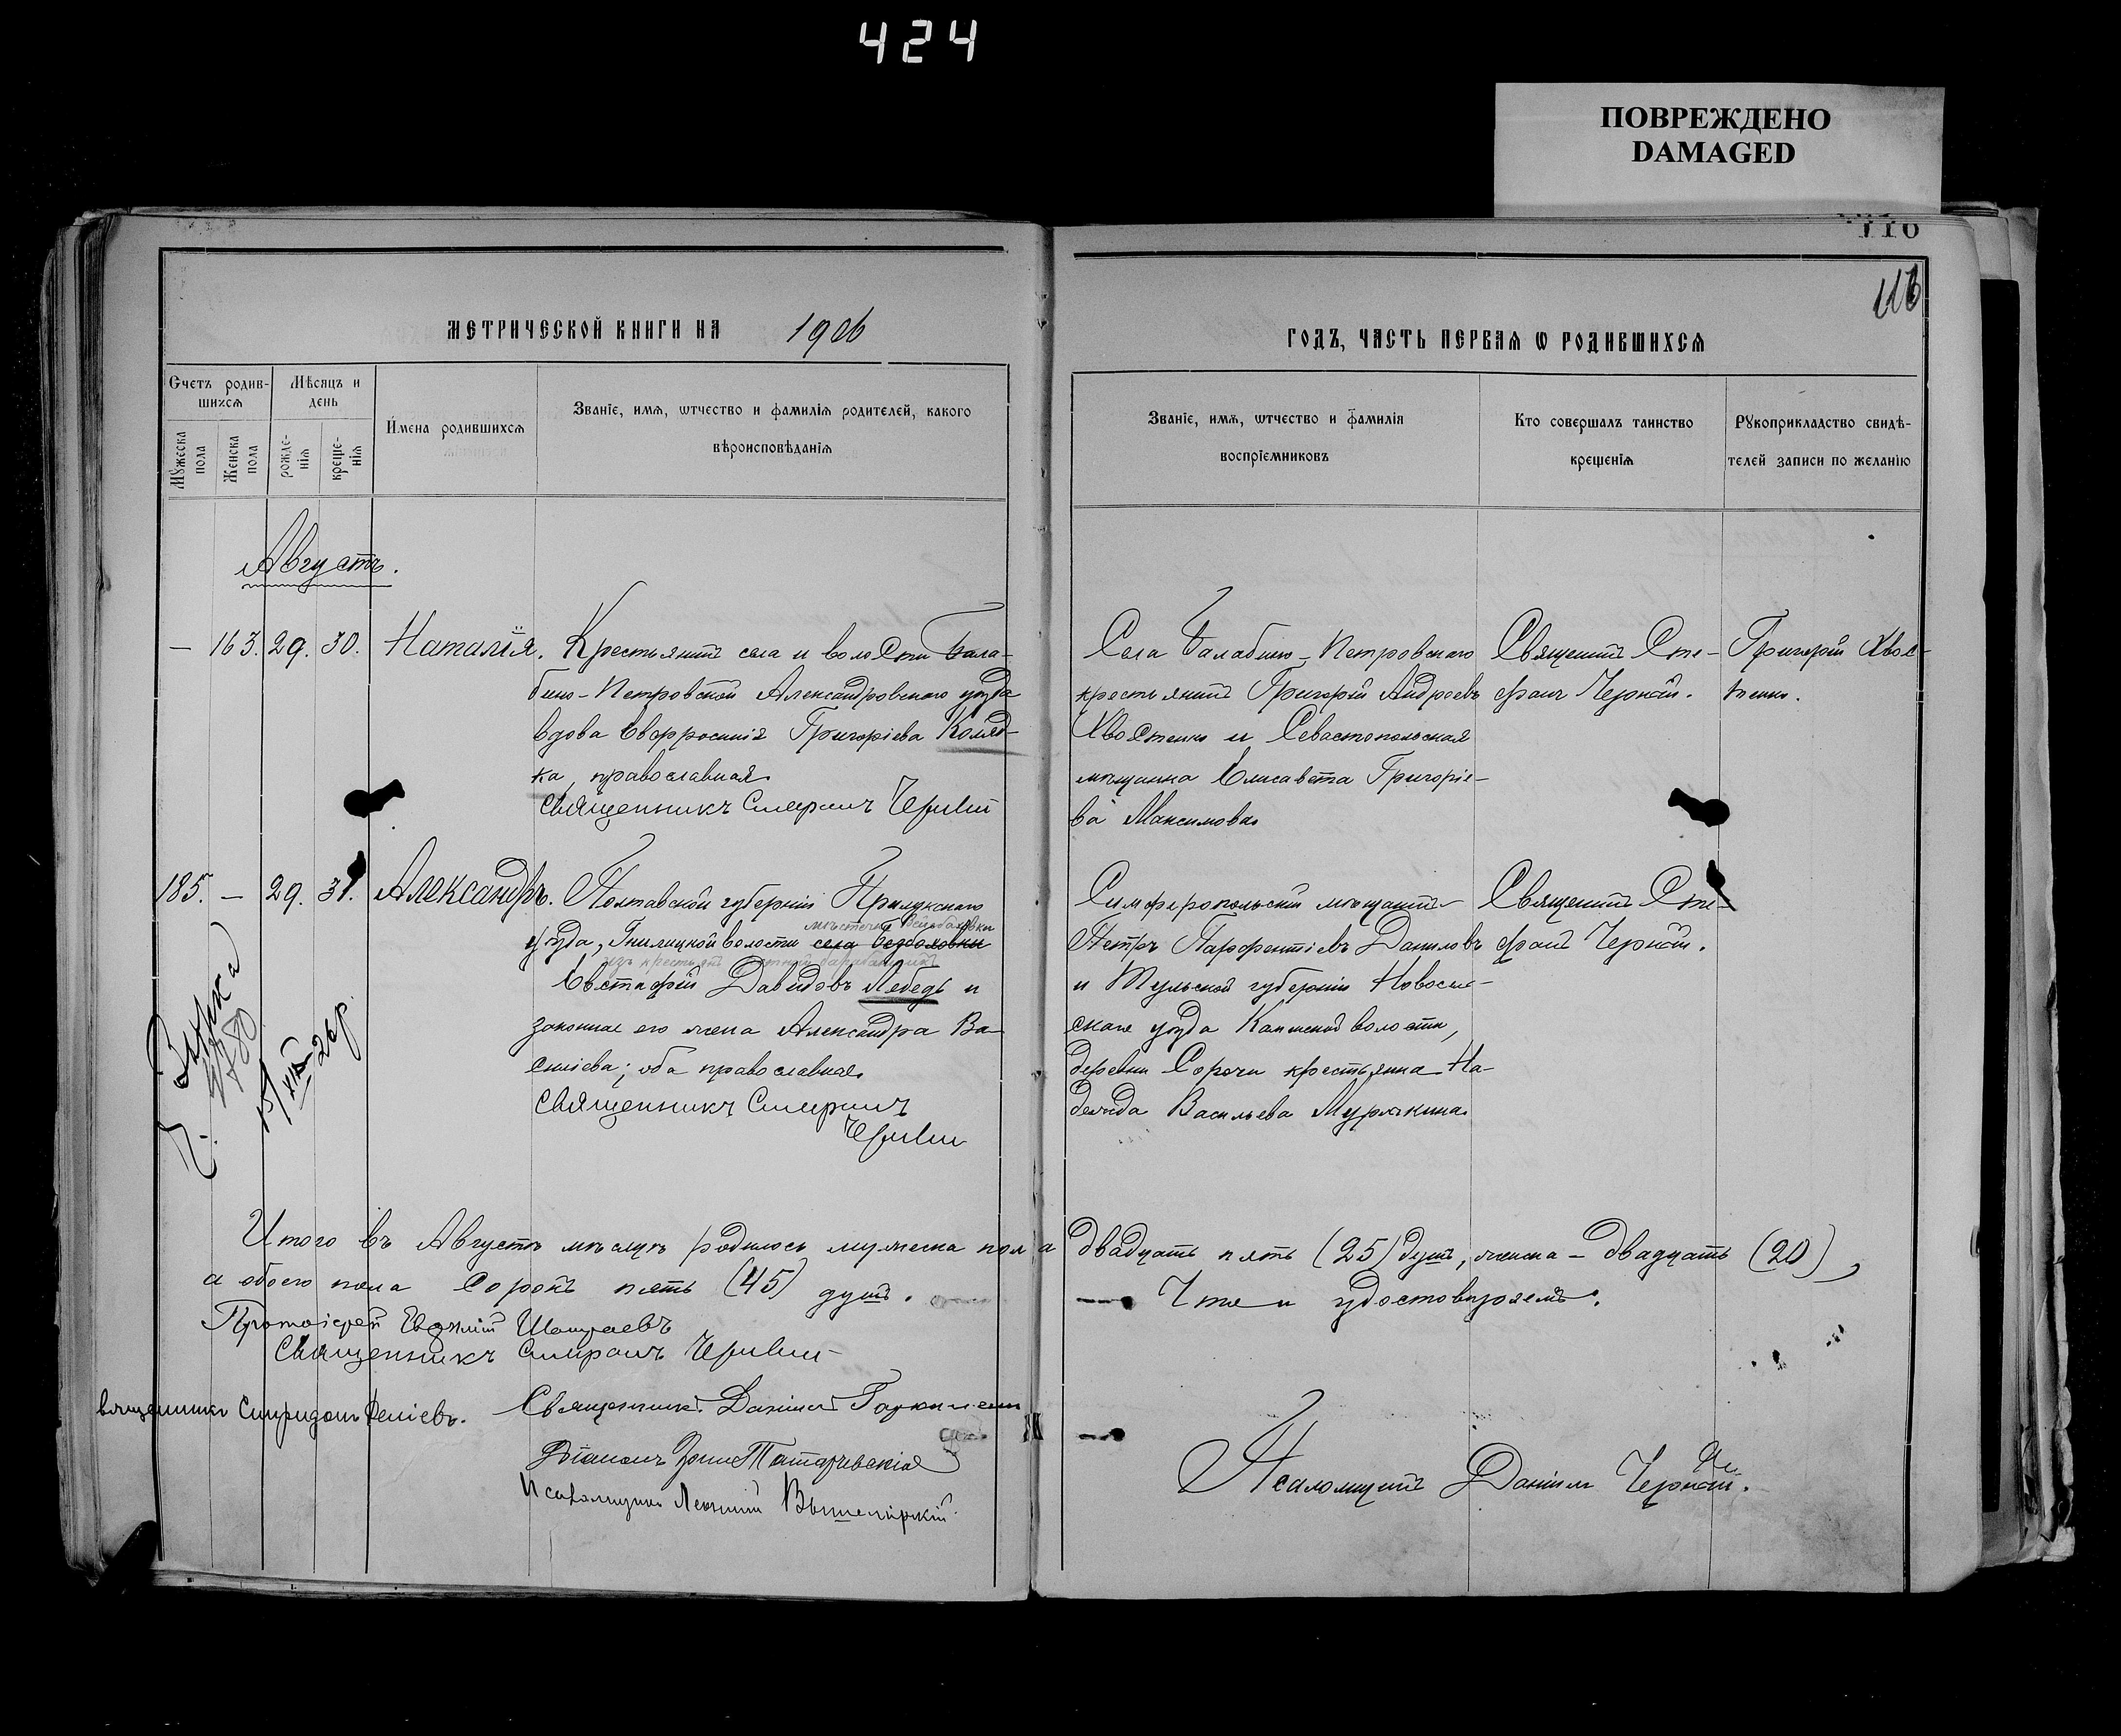 424
ПОВРЕЖДЕНО
DAMAGED
116
МЕТРИЧЕСКОЙ КНИГИ НА 1906
ГОДЪ, ЧАСТЬ ПЕРВАѦ Ѡ РОДИВШИХСѦ
Счетъ родив-
шихсѧ
Мѣсяцъ и
день
Мꙋжеска
пола
Женска
пола
рожде-
нїѧ
креще-
нїѧ
Имена родившихсѧ
Званїе, имѧ, ѡтчество и фамилїѧ родителей, какого
вѣроисповѣданїѧ
Званїе, имѧ, ѡтчество и фамилїѧ
воспрїемниковъ
Кто совершалъ таинство
крещенїѧ
Рꙋкоприкладство свидѣ-
телей записи по желанїю
Августъ.
— 163. 29. 30. Наталія.
Крестьянинъ села и волости Бала-
бино-Петровской Александровскаго уѣзда
вдова Евфросинія Григоріева Коляд-
ка, православная.
Священникъ Стефанъ Черный
Села Балабино-Петровскаго
крестьянинъ Григорій Андреевъ
Хвостенко и Севастопольская
мѣщанка Елисавета Григоріе-
ва Максимова.
Священникъ Сте-
фанъ Черный.
Григорій Хвос-
тенко.
185. — 29. 31. Александръ.
Полтавской губерніи Прилукскаго
мѣстечка
уѣзда, Гнилицкой волости села Безбаховки
изъ крестьянъ
Евстафій Давидовъ Лебедь и
законная его жена Александра Ва-
силіева; оба православные.
Священникъ Стефанъ
Черный
Симферопольскій мѣщанинъ
Петръ Парфентіевъ Даниловъ
и Тульской губерніи Новосиль-
скаго уѣзда Каменской волости,
деревни Сорочи крестьянка На-
дежда Васильева Мурякина.
Священникъ Сте-
фанъ Черный.
Итого въ Августѣ мѣсяцѣ родилось мужеска пола двадцать пять (25) душъ, женска – двадцать (20),
а обоего пола сорокъ пять (45) душъ.
Что и удостовѣряемъ:
Протоіерей
Священникъ Стефанъ Черный
Священникъ Спиридонъ
Священникъ Даніилъ
Діаконъ
Псаломщикъ
Псаломщикъ Даніилъ Черный.